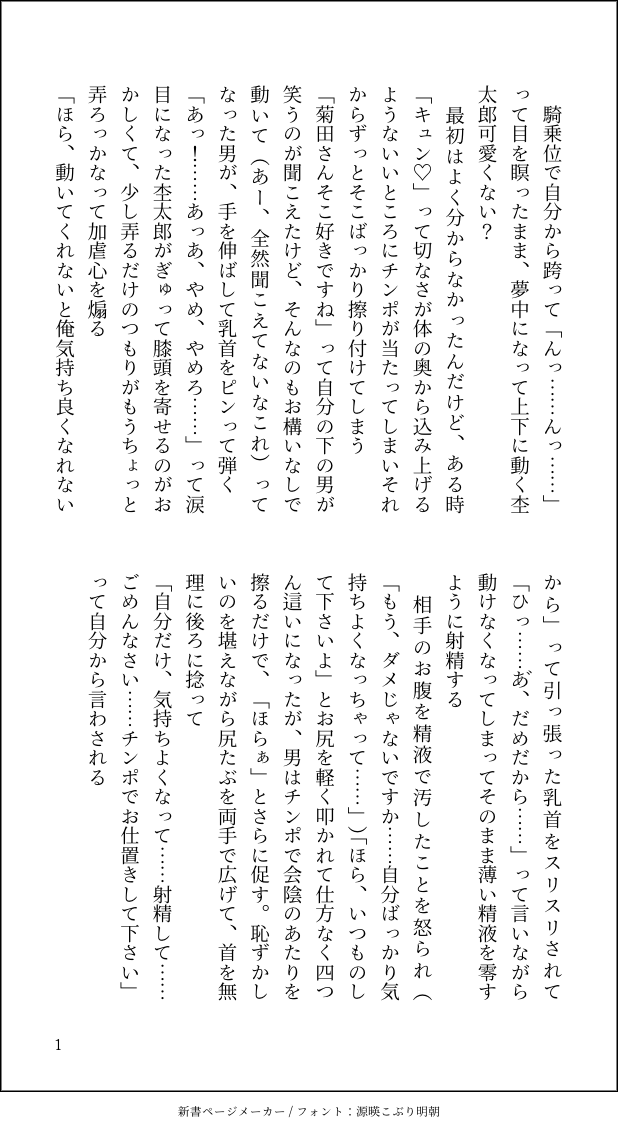 騎乗位で自分から跨って「んっ……んっ……」
って目を瞑ったまま、夢中になって上下に動く杢
太郎可愛くない？
　最初はよく分からなかったんだけど、ある時
「キュン♡」って切なさが体の奥から込み上げる
ようないいところにチンポが当たってしまいそれ
からずっとそこばっかり擦り付けてしまう
「菊田さんそこ好きですね」って自分の下の男が
笑うのが聞こえたけど、そんなのもお構いなしで
動いて（あー、全然聞こえてないなこれ）って
なった男が、手を伸ばして乳首をピンって弾く
「あっ！……あっあ、やめ、やめろ……」って涙
目になった杢太郎がぎゅって膝頭を寄せるのがお
かしくて、少し弄るだけのつもりがもうちょっと
弄ろっかなって加虐心を煽る
「ほら、動いてくれないと俺気持ち良くなれない
から」って引っ張った乳首をスリスリされて
「ひっ……あ゙、だめだから……」って言いながら
動けなくなってしまってそのまま薄い精液を零す
ように射精する
　相手のお腹を精液で汚したことを怒られ（
「もう、ダメじゃないですか……自分ばっかり気
持ちよくなっちゃって……」）「ほら、いつものし
て下さいよ」とお尻を軽く叩かれて仕方なく四つ
ん這いになったが、男はチンポで会陰のあたりを
擦るだけで、「ほらぁ」とさらに促す。恥ずかし
いのを堪えながら尻たぶを両手で広げて、首を無
理に後ろに捻って
「自分だけ、気持ちよくなって……射精して……
ごめんなさい……チンポでお仕置きして下さい」
って自分から言わされる
1
新書ページメーカー / フォント：源暎こぶり明朝